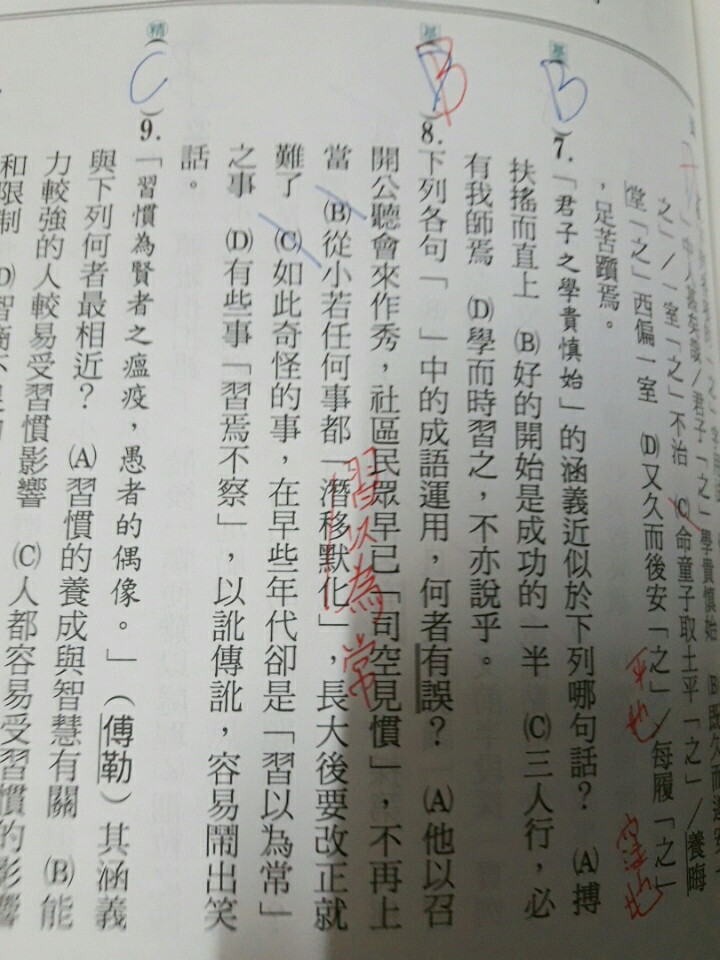 堂「之」西偏一室 (D)又久而後安「之」/每履「之」
，足苦躓焉。
之」/一室「之」不治 (C)命童子取土平「之」/養晦
平地
窪地
(B) 7.「君子之學貴慎始」的涵義近似於下列哪句話？ (A)搏
扶搖而直上 (B)好的開始是成功的一半 (C)三人行，必
有我師焉 (D)學而時習之，不亦說乎。
(B) 8.下列各句「 」中的成語運用，何者有誤？ (A)他以召
開公聽會來作秀，社區民眾早已「司空見慣」，不再上
當 (B)從小若任何事都「潛移默化」，長大後要改正就
習以為常
難了 (C)如此奇怪的事，在早些年代卻是「習以為常」
之事 (D)有些事「習焉不察」，以訛傳訛，容易鬧出笑
話。
(C) 9.「習慣為賢者之瘟疫，愚者的偶像。」（傅勒）其涵義
與下列何者最相近？ (A)習慣的養成與智慧有關 (B)能
力較強的人較易受習慣影響 (C)人都容易受習慣的影響
和限制